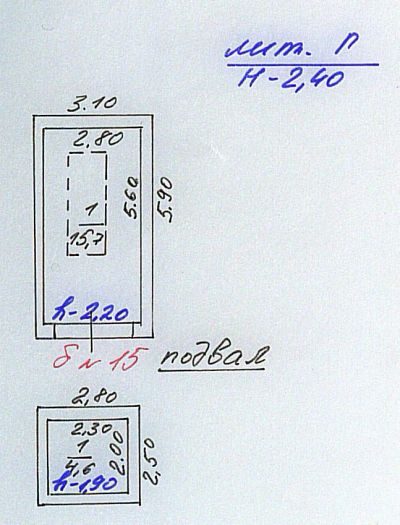 лит. Г
Н-2,40
3.10
2.80
5.60
5.90
1
15,7
h-2,20
б № 15
подвал
2,80
2,30
1
4,6
2.00
2,50
h-1,90